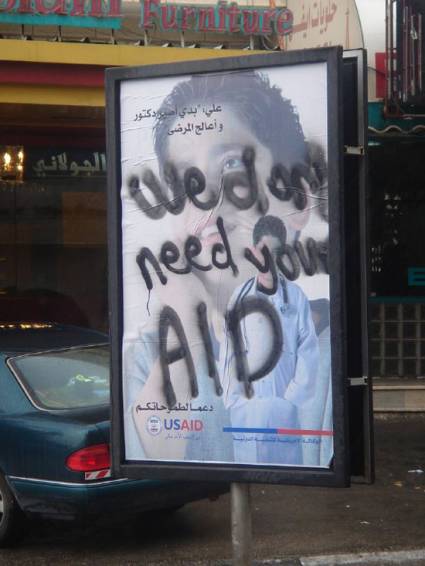 Furniture
الجولاني
علي، "بدي أصير دكتور
و أعالج المرضى"
We dont
need your
AID
دعماً لطموحاتكم
USAID
الوكالة الأمريكية للتنمية الدولية